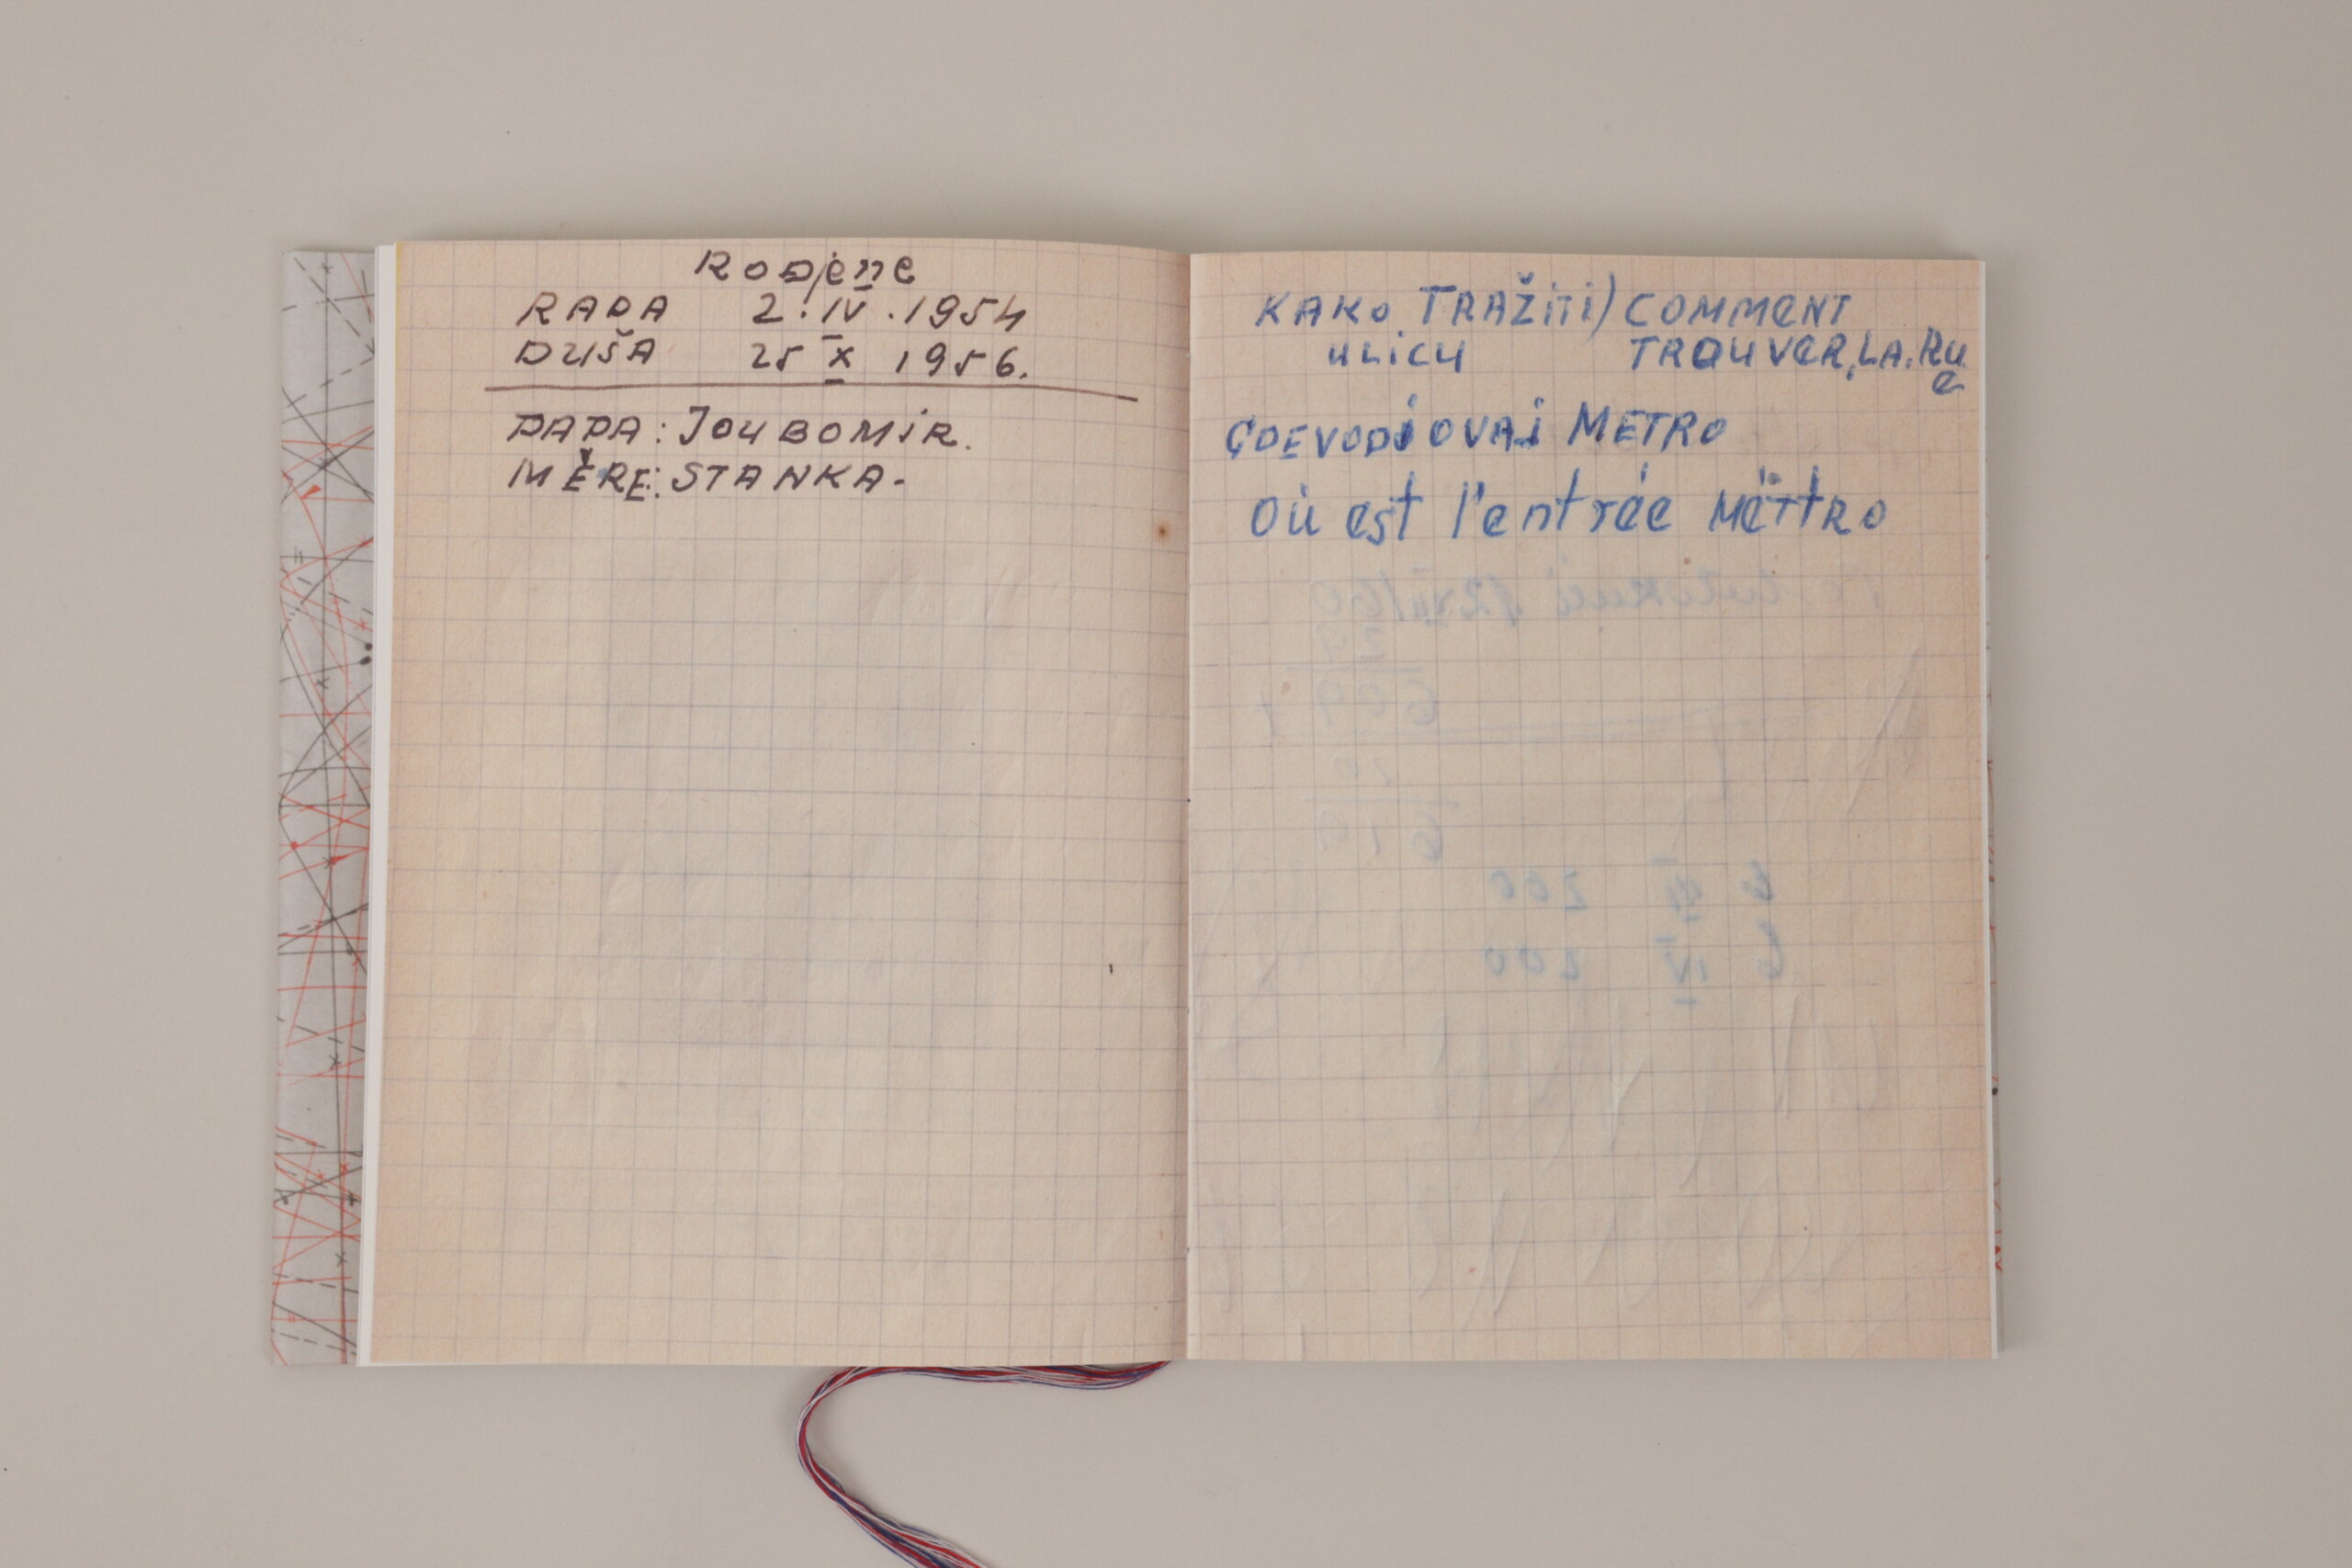 RODjene
RADA 2. IV. 1954
DUŠA 25 X 1956.
PAPA: JOUBOMIR.
MĚRE: STANKA.
KAKO TRAŽITI) COMMENT
ULICU TROUVER, LA. RU
e
GDE VODI OVAJ METRO
Où est l'entrée MËTTRO